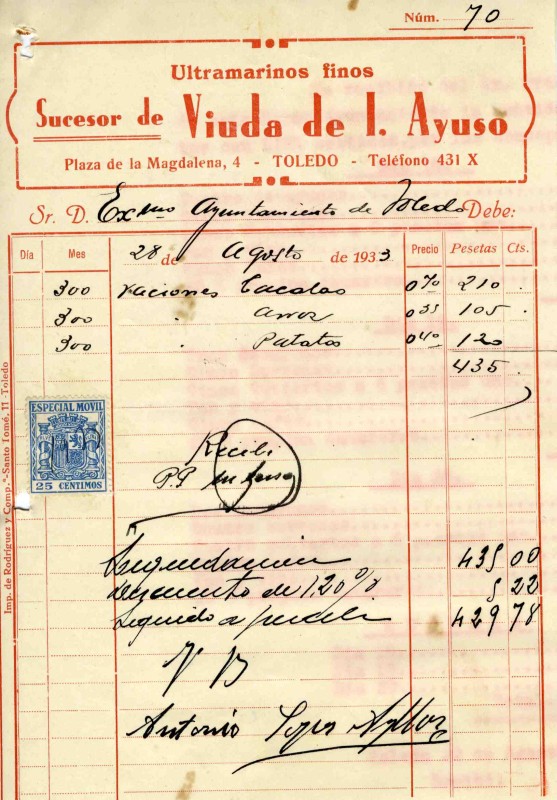 Núm. 70
Ultramarinos finos
Sucesor de Viuda de I. Ayuso
Plaza de la Magdalena, 4 - TOLEDO - Teléfono 431 X
Sr. D. Exmo Ayuntamiento de Toledo Debe:
Día Mes 28 de Agosto de 1933 Precio Pesetas Cts.
300 raciones 0 70 210 .
300 . Arroz 0 35 105 .
300 . Patatas 0 40 120
435 .
ESPECIAL MOVIL
25 CENTIMOS
Recibi
P.P.
Liquidación 435 00
Descuento de 1,20% 5 22
Liquido a 429 78
Vº Bº
Antonio
Imp. de Rodríguez y Comp.ª-Santo Tomé, 11-Toledo